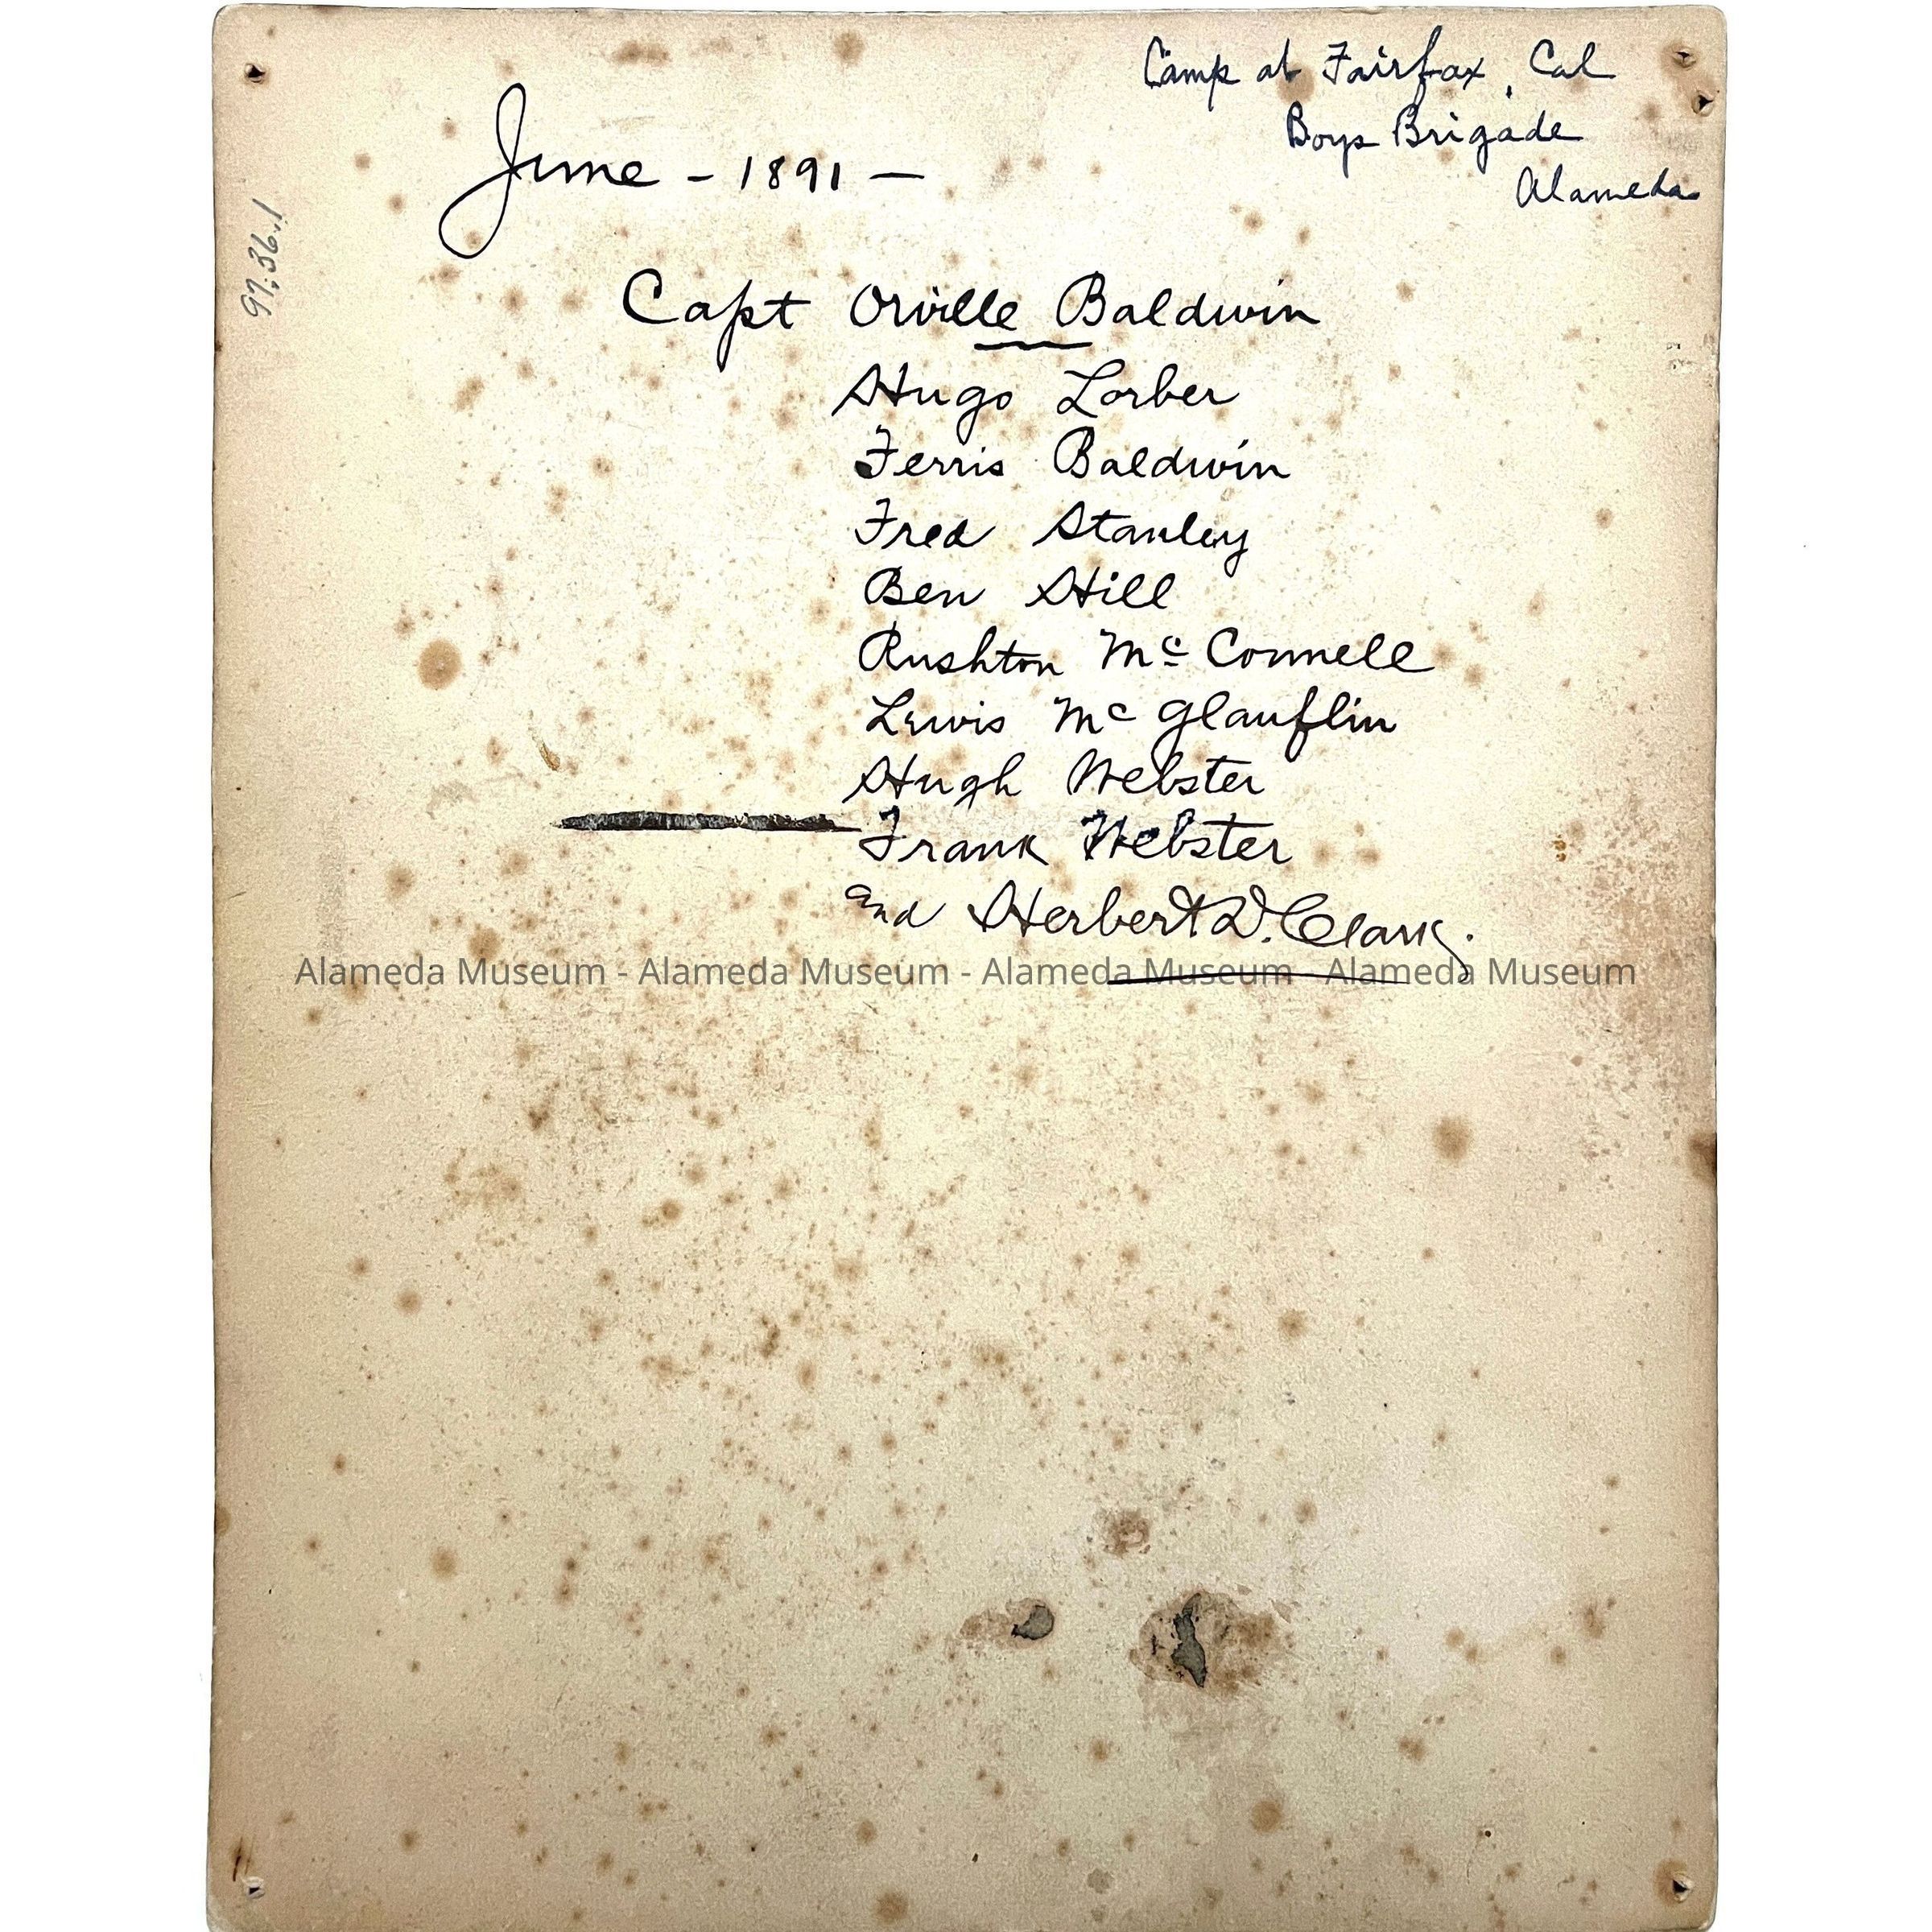 Camp at Fairfax, Cal
Boys Brigade
Alameda
June - 1891 -
97.36.1
Capt Orville Baldwin
Hugo Lorber
Ferris Baldwin
Fred Stanley
Ben Hill
Rushton Mc Connell
Lewis Mc Glauflin
Hugh Webster
Frank Webster
and Herbert D. Clark.
Alameda Museum - Alameda Museum - Alameda Museum - Alameda Museum